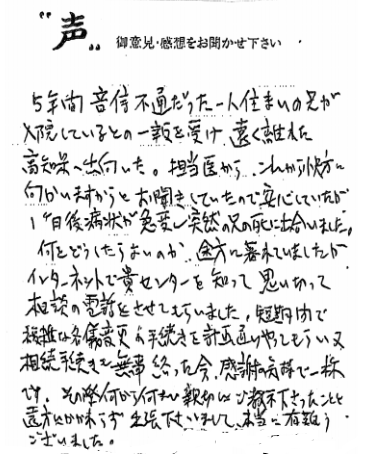 "声" 御意見・感想をお聞かせ下さい
5年間音信不通だった一人住まいの兄が
入院しているとの一報を受け、遠く離れた
高知県へ出向いた。担当医から、これから快方に
向かいますからとお聞きしていたので安心していたが
1日後病状が急変し突然の兄の死に出会いました。
何をどうしたらよいのか、途方に暮れていましたが
インターネットで貴センターを知って思い切って
相談の電話をさせてもらいました。短期間で
複雑な名儀変更の手続きを計画通りやってもらい又
相続手続きも無事終った今、感謝の気持で一杯
です。その際何から何まで親切にご教示下さったこと
遠方にかかわらず出張下さいまして、本当に有難う
ございました。